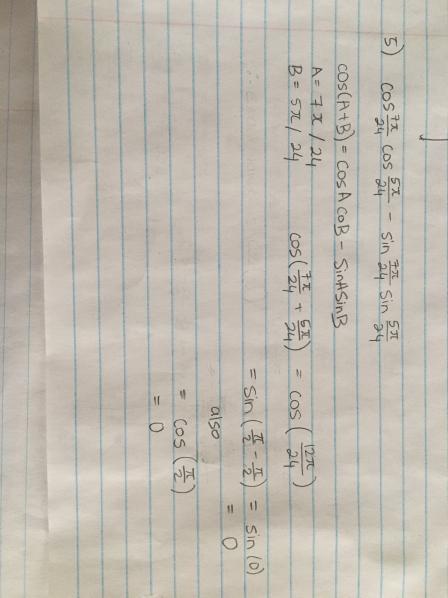 5) cos 7π/24 cos 5π/24 - sin 7π/24 sin 5π/24
cos(A+B) = cos A coB - SinA sinB
A = 7π / 24
B = 5π / 24
cos(7π/24 + 5π/24) = cos (12π/24)
= sin(π/2 - π/2) = sin(0)
= 0
also
= cos (π/2)
= 0